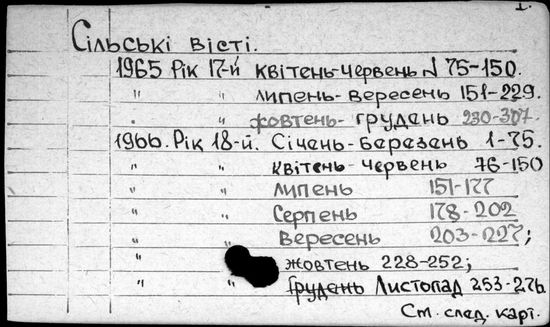 1.
Сільські вісті.
1965 Рік 17-й квітень-червень N 75-150.
" " липень-вересень 151-229.
" " жовтень-грудень 230-307.
1966. Рік 18-й. Січень-березень 1-75.
" " квітень-червень 76-150
" " липень 151-177
" " Серпень 178-202
" " вересень 203-227;
" жовтень 228-252;
" " Грудень Листопад 253-276
См. след. карт.